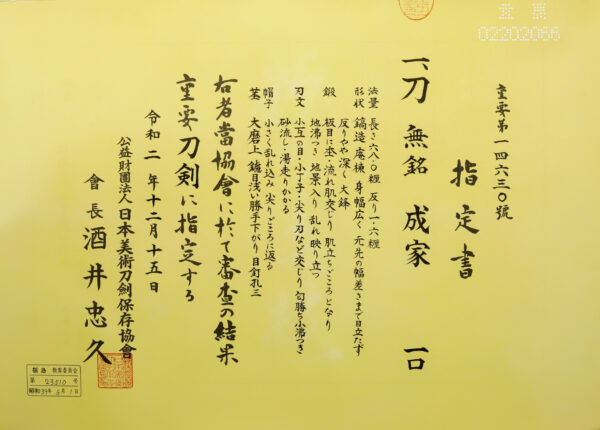 重要第一四六三〇號
指定書
一、刀 無銘 成家 一口
法量 長さ六八・〇糎 反り一・六糎
形状 鎬造 庵棟 身幅広く 元先の幅差さまで目立たず
反りやや深く 大鋒
鍛 板目に杢・流れ肌交じり 肌立ちごころとなり
地沸つき 地景入り 乱れ映り立つ
刃文 小互の目・小丁子・小尖り刃など交じり 匂勝ち小沸つき
砂流し・湯走りかかる
帽子 小さく乱れ込み 尖りごころに返る
茎 大磨上 鑢目浅い勝手下がり 目釘孔三
右者當協會に於て審査の結果
重要刀剣に指定する
令和二年十二月十五日
公益財團法人日本美術刀劍保存協會
會長 酒井忠久
02202066
教育委員会
第 23510 号
昭和39年6月1日